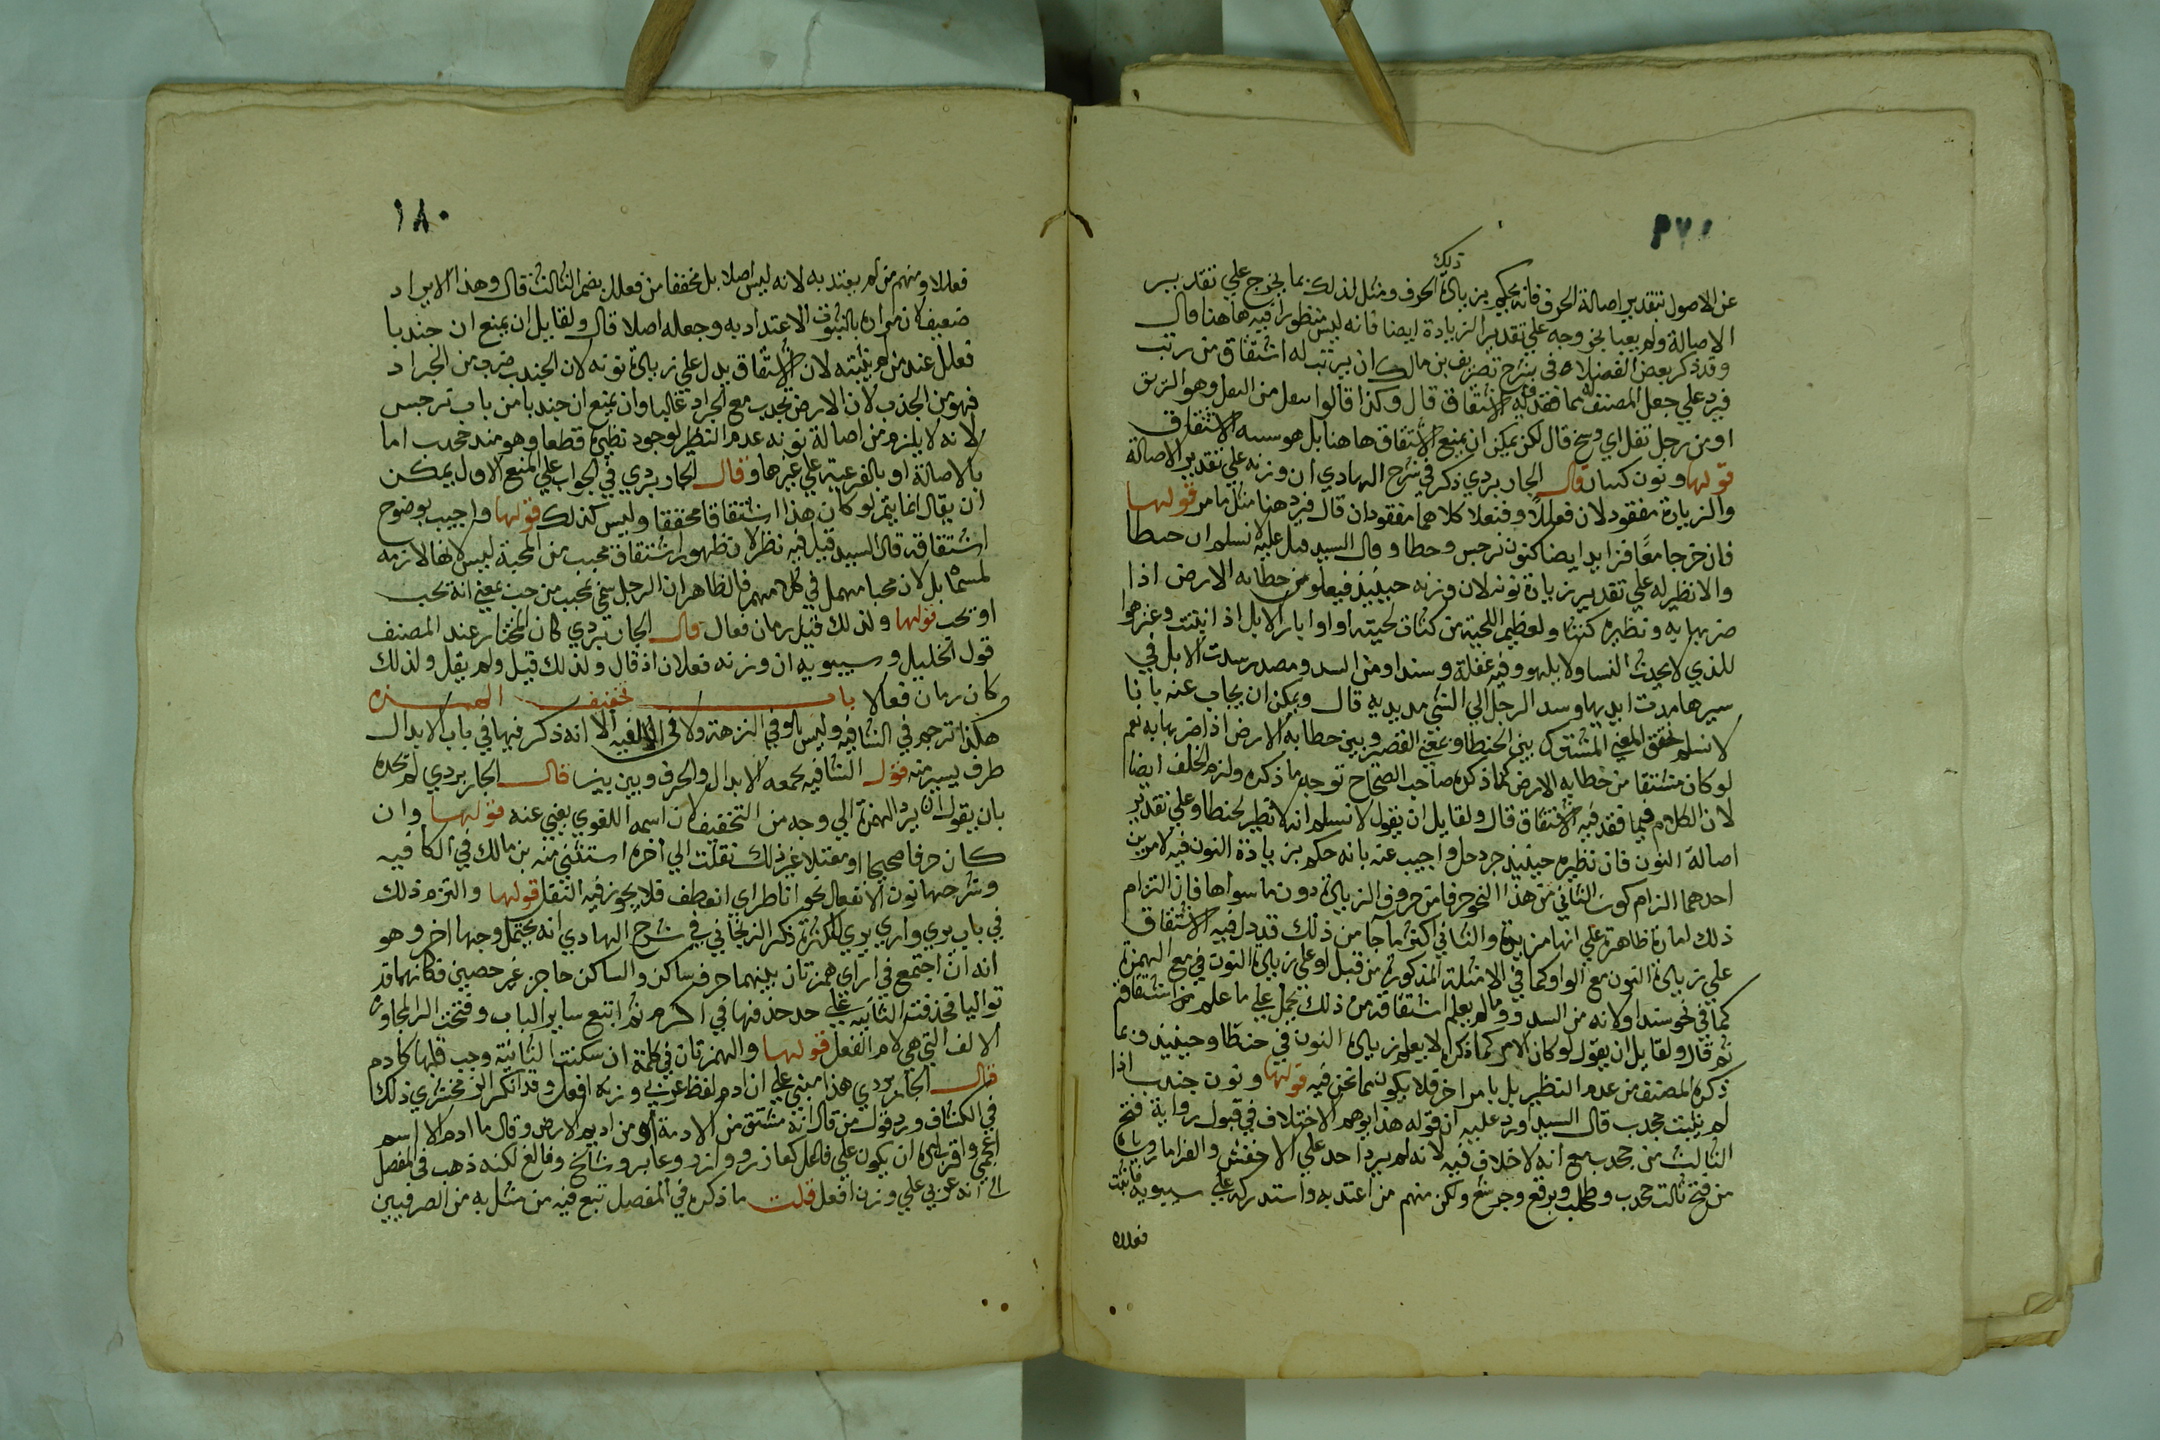 ذلك
عن الاصول بتقدير اصالة الحرف فانه يحكم بزيادة الحرف ومثل لذلك بما يخرج علي تقدير
الاصالة ولم يعبا بخروجه علي تقدير الزيادة ايضا فانه ليس منظورا فيه هاهنا قال
وقد ذكر بعض الفضلاء في شرح تصريف بن مالك ان يرتب له اشتقاق من رتب
فيرد علي جعل المصنف له مما فقد فيه الاشتقاق قال وكذا قالوا من وهو الريق
او من رجل تفل اي وسخ قال لكن يمكن ان يمنع الاشتقاق هاهنا بل هو شبه الاشتقاق
قولها ونون قال الجاربردي ذكر في شرح الهادي ان وزنه علي تقدير الاصالة
والزيادة مفقود لان فعللا وفنعلا كلاهما مفقودان قال فيرد هنا مثل ما مر قولها
فان خرجا معا فزايد ايضا كنون نرجس وحنطاو قال السيد قيل عليه لا نسلم ان حنطا
والا نظير له علي تقدير زيادة نونه لان وزنه حينئذ فنعلو من حطا به الارض اذا
ضربها به ونظيره كنثا ولعظيم اللحية من كثات لحيته او اوبار الابل اذا انبتت وعنزهوا
للذي لا يحدث النسا ولا يلهو وفيه غفلة وسنداو من السد ومصدر سدت الابل في
سيرها مدت ايديها وسد الرجل الي الشي مد يديه قال ويمكن ان يجاب عنه بانا
لا نسلم تحقق المعني المشترك بين الحنطاو بمعني القصير وبين حطا به الارض اذا ضربها به نعم
لو كان مشتقا من حطا به الارض كما ذكره صاحب الصحاح توجه ما ذكره ولزم الخلف ايضا
لان الكلام فيما فقد فيه الاشتقاق قال ولقايل ان يقول لا نسلم انه لا نظير لحنطاو علي تقدير
اصالة النون فان نظيره حينئذ جردحل واجيب عنه بانه حكم بزيادة النون فيه لامرين
احدهما الزام كون الثاني من هذا النحو حرفا من حروف الزيادة دون ما سواها فان التزام
ذلك امارة ظاهرة علي انها مزيدة والثاني اكثر ما جا من ذلك قد دل فيه الاشتقاق
علي زيادة النون مع الواو كما في الامثلة المذكورة من قبل او علي زيادة النون في مع الهمزة
كما في نحو سنداو لانه من السد وو ما لم يعلم اشتقاقه من ذلك يحمل علي ما علم من اشتقاقه
ثم قال ولقايل ان يقول لو كان الامر كما ذكر لا يعلم زيادة النون في حنطاو حينئذ بما
ذكره المصنف من عدم النظير بل بامر اخر فلا يكون مما نحن فيه قولها ونون جندب اذا
لم يثبت جحدب قال السيد اورد عليه ان قوله هذا يوهم الاختلاف في قبول رواية فتح
الثالث من جحدب مع انه لا خلاف فيه لانه لم يرد احد علي الاخفش والفرا ما روياه
من فتح ثالث جحدب وطحلب وبرقع وجرشع ولكن منهم من اعتد به واستدركه علي سيبويه فاثبت
فعللا
١٨٠
فعللا ومنهم من لم يعتد به لانه ليس اصلا بل مخففا من فعلل بضم الثالث قال وهذا الايراد
ضعيف لان مراده بالثبوت الاعتداد به وجعله اصلا قال ولقايل ان يمنع ان جندبا
فعلل عند من لم يثبته لان الاشتقاق يدل علي زيادة نونه لان الجندب ضرب من الجراد
فهو من الجدب لان الارض تجدب مع الجراد غالبا وان يمنع ان جندبا من باب نرجس
لانه لا يلزم من اصالة نونه عدم النظير لوجود نظيره قطعا وهو جحدب اما
بالاصالة او بالفرعية علي غيرها وقال الجاربردي في الجواب علي المنع الاول يمكن
ان يقال انما يتم لو كان هذا اشتقاقا محققا وليس كذلك قولها واجيب بوضوح
اشتقاقه قال السيد قيل فيه نظر لان ظهور اشتقاق محبب من المحبة ليس لانها لازمه
لمسماه بل لان محبا مهمل في كلامهم فالظاهر ان الرجل سمي بمحبب من حب بمعني انه يحب
او يحب قولها ولذلك قيل رمان فعال قال الجاربردي كان المختار عند المصنف
قول الخليل وسيبويه ان وزنه فعلان اذ قال ولذلك قيل ولم يقل ولذلك
كان رمان فعالا باب تخفيف الهمزه
هكذا ترجم في الشافيه وليس بالوفي في النزهة ولا في الالفيه الا انه ذكر فيها في باب الابدال
طرف يسير منه قول الشافيه يجمعه الابدال والحرف وبين بين قال الجاربردي لم يحده
بان يقول ان يرد الهمزة الي وجه من التخفيف لان اسمه اللغوي يغني عنه قولها وان
كان حرفا صحيحا او معتلا غير ذلك نقلت الي اخره استثني منه بن مالك في الكافيه
وشرحها نون الانفعال نحو اناطر اي انعطف فلا يجوز فيه النقل قولها والتزم ذلك
في باب يري واري يري للكثرة ذكر الزنجاني في شرح الهادي انه يحتمل وجها اخر وهو
انه ان اجتمع في اراي همزتان بينهما حرف ساكن والساكن حاجز غير حصين فكانهما قد
تواليا فحذفت الثانية علي حد حذفها في اكرم ثم اتبع ساير الباب وفتحت الرا لمجاورة
الالف التي هي لام الفعل قولها والهمزتان في كلمة ان سكنت الثانية وجب قلبها كادم
قال الجاربردي هذا مبني علي ان ادم لفظ عربي وزنه افعل وقد انكر الزمخشري ذلك
في الكشاف ورد قول من قال انه مشتق من الادمة او من اديم الارض وقال ما ادم الا اسم
اعجمي واقرب امره ان يكون علي فاعل كعازر وازر وعابر وشالخ وفالغ لكنه ذهب في المفصل
الي انه عربي علي وزن افعل قلت ما ذكره في المفصل تبع فيه من مثل به من الصرفيين